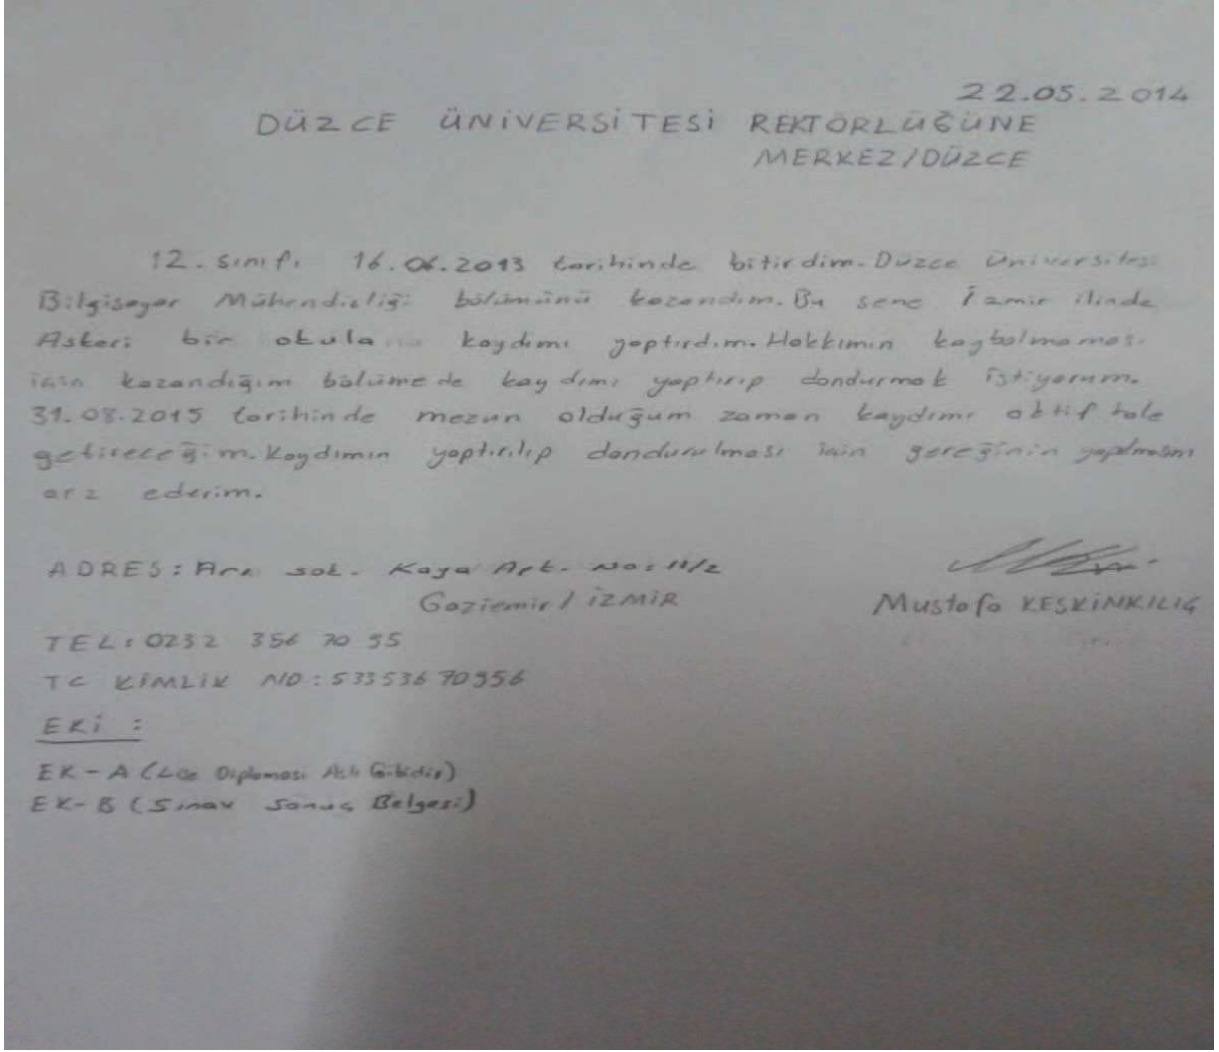 22.05.2014
DÜZCE ÜNİVERSİTESİ REKTÖRLÜĞÜNE
MERKEZ/DÜZCE
12. sınıfı 16.06.2013 tarihinde bitirdim. Düzce Üniversitesi
Bilgisayar Mühendisliği bölümünü kazandım. Bu sene İzmir ilinde
Askeri bir okula kaydımı yaptırdım. Hakkımın kaybolmaması
için kazandığım bölüme de kaydımı yaptırıp dondurmak istiyorum.
31.08.2015 tarihinde mezun olduğum zaman kaydımı aktif hale
getireceğim. Kaydımın yaptırılıp dondurulması için gereğinin yapılmasını
arz ederim.
ADRES: Ara sok. Kaya Apt. No: 11/2
Gaziemir / İZMİR
Mustafa KESKİNKILIÇ
TEL: 0232 356 70 95
TC KİMLİK NO: 53353670956
EKİ :
EK-A (Lise Diploması Aslı Gibidir)
EK-B (Sınav Sonuç Belgesi)